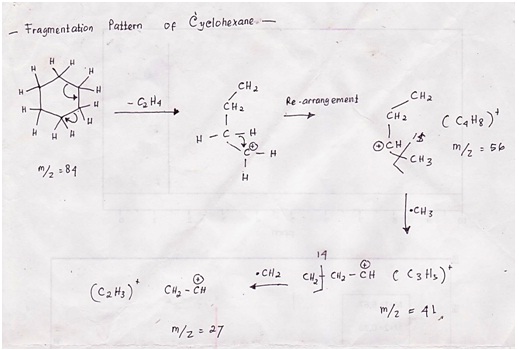 - Fragmentation Pattern of Cyclohexane -
H H H H H H H H H H
m/z = 84
- C2H4
CH2
CH2
H - C - H
C - H
H
⊕
Re-arrangement
CH2
CH2
⊕ CH
CH3
15
(C4H8)+
m/z = 56
•CH3
14
CH2 CH2 - CH
⊕
(C3H5)+
m/z = 41
•CH2
CH2 - CH
⊕
(C2H3)+
m/z = 27